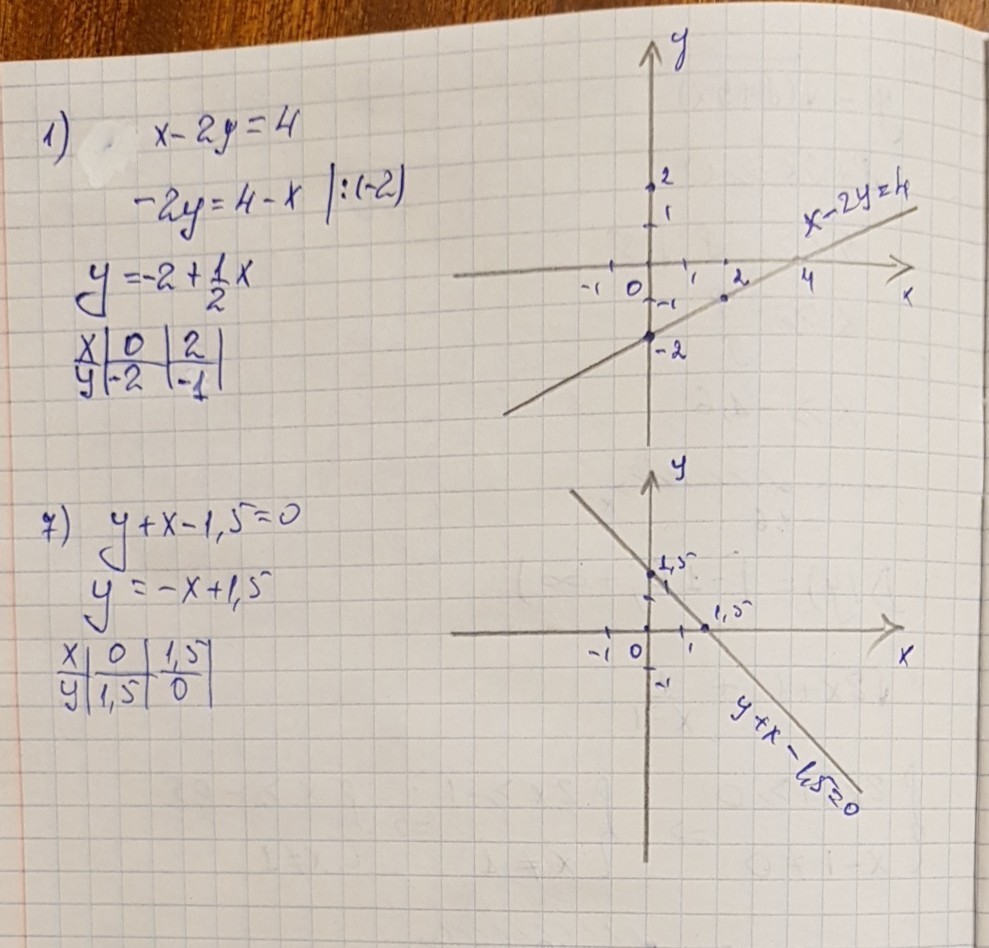 1) x - 2y = 4
-2y = 4 - x |:(-2)
y = -2 + 1/2 x
x | 0 | 2 |
y | -2 | -1 |
y
2
1
x - 2y = 4
-1 0 1 2 4 x
-1
-2
7) y + x - 1,5 = 0
y = -x + 1,5
x | 0 | 1,5 |
y | 1,5 | 0 |
y
1,5
1
1,5
-1 0 1 x
-1
y + x - 1,5 = 0